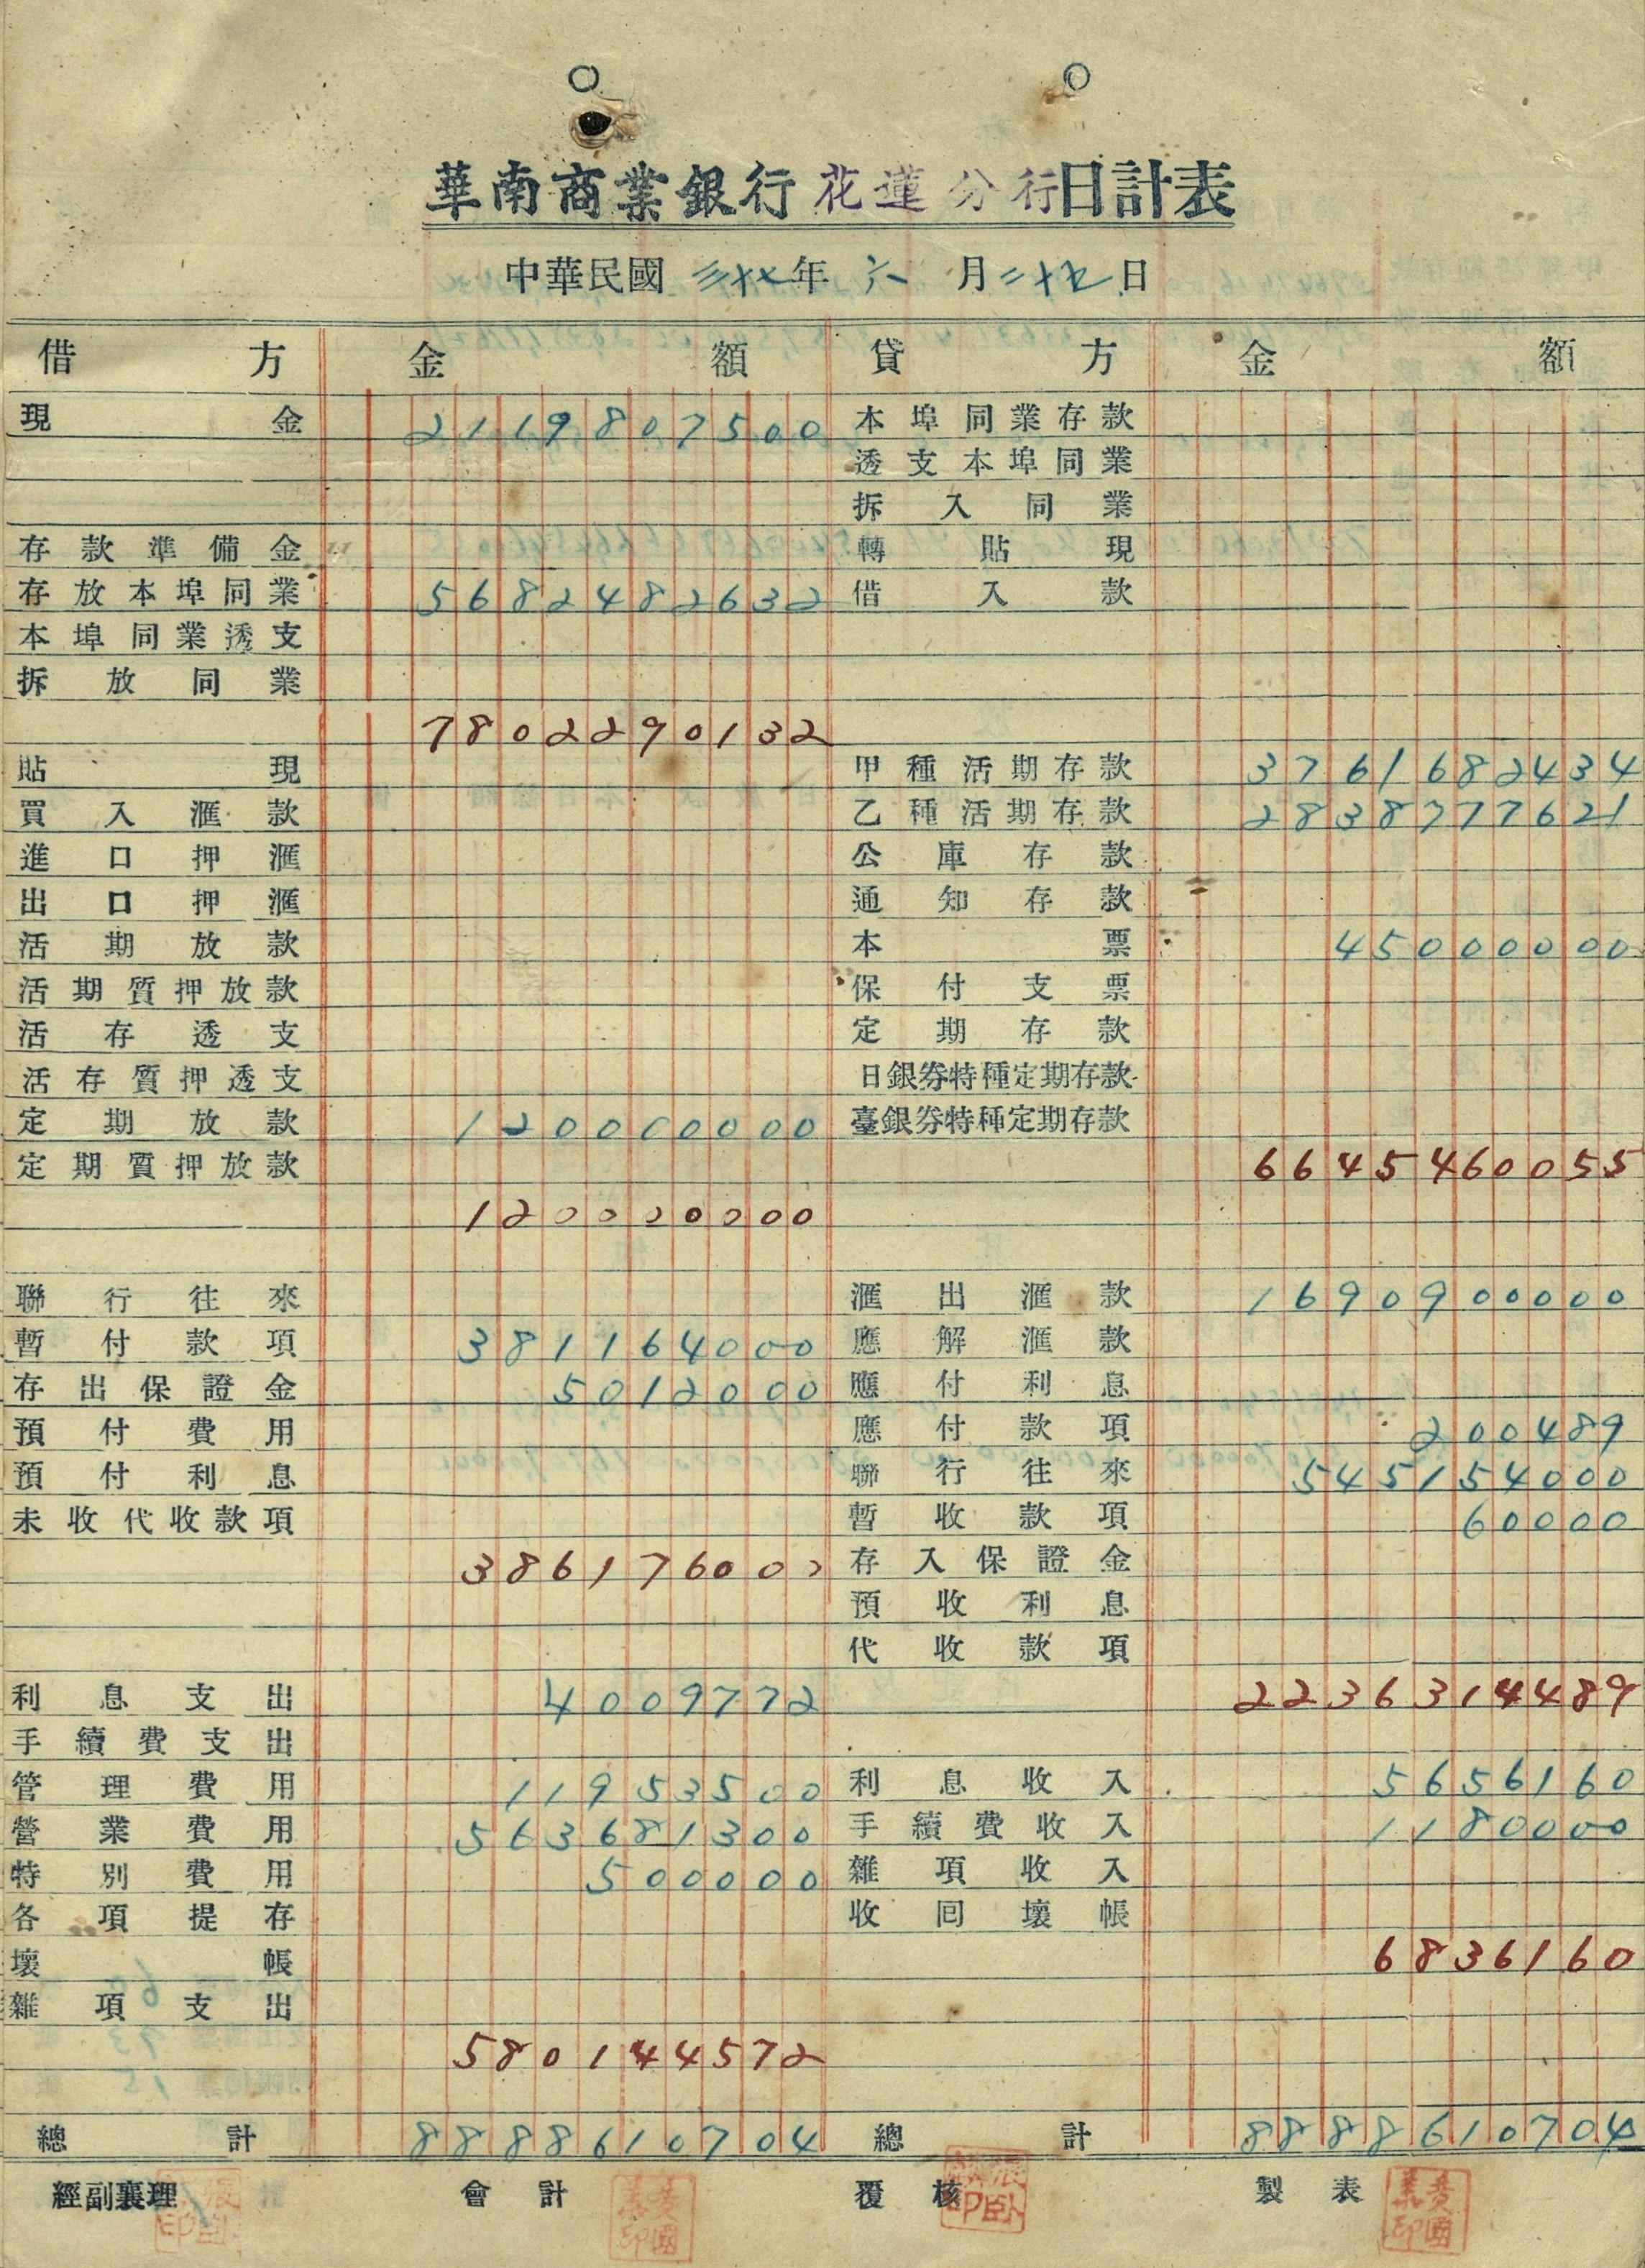 華南商業銀行花蓮分行日計表
中華民國三十七年六月二十九日
借方 金額 貸方 金額
現金 2119807500 本埠同業存款
透支本埠同業
拆入同業
存款準備金 轉貼現
存放本埠同業 5682482632 借入款
本埠同業透支
拆放同業
7802290132
貼現 甲種活期存款 3761682434
買入滙款 乙種活期存款 2838777621
進口押滙 公庫存款
出口押滙 通知存款
活期放款 本票 45000000
活期質押放款 保付支票
活存透支 定期存款
活存質押透支 日銀券特種定期存款
定期放款 120000000 臺銀券特種定期存款
定期質押放款 6645460055
120000000
聯行往來 滙出滙款 1690900000
暫付款項 381164000 應解滙款
存出保證金 5012000 應付利息
預付費用 應付款項 200489
預付利息 聯行往來 545154000
未收代收款項 暫收款項 60000
386176000 存入保證金
預收利息
代收款項
利息支出 4009772 2236314489
手續費支出
管理費用 11953500 利息收入 5656160
營業費用 563681300 手續費收入 1180000
特別費用 500000 雜項收入
各項提存 收回壞帳
壞帳 6836160
雜項支出
580144572
總計 8888610704 總計 8888610704
經副襄理 會計 覆核 製表